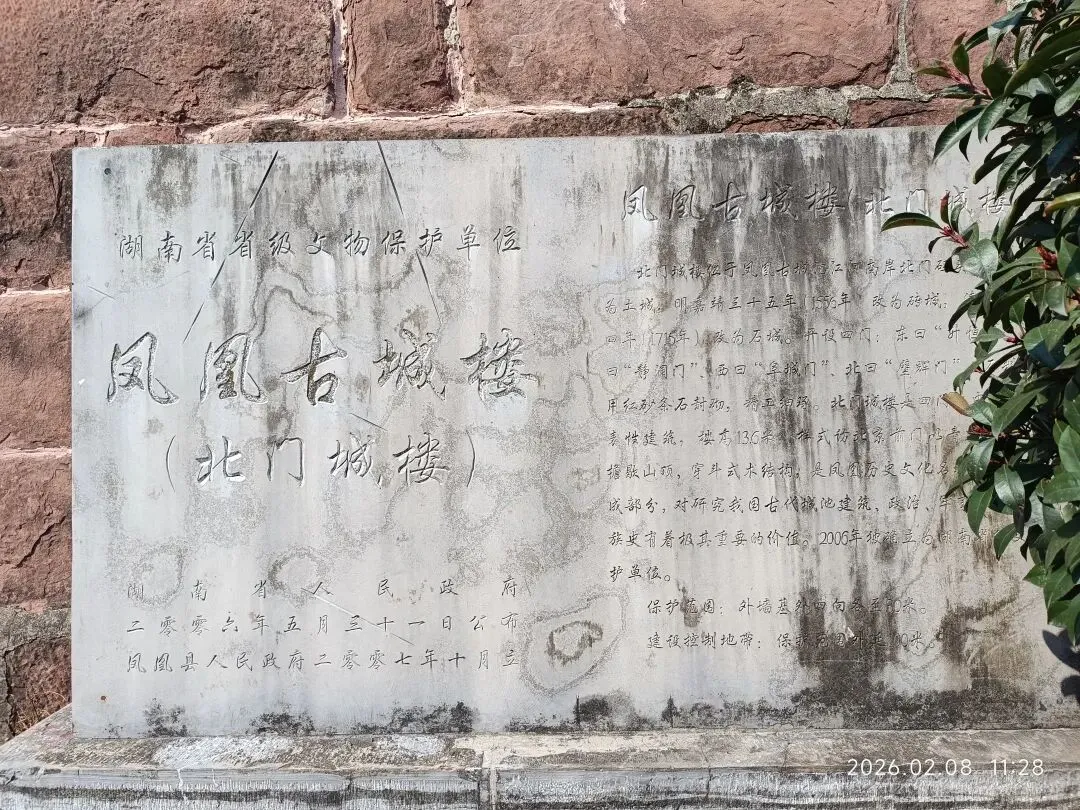 湖南省省级文物保护单位
凤凰古城楼
（北门城楼）
湖南省人民政府
二零零六年五月三十一日公布
凤凰县人民政府二零零七年十月立
凤凰古城楼（北门城楼
北门城楼位于凤凰古城 江 南岸北门
为土城。明嘉靖三十五年（1556年）改为砖城。
四年（1715年）改为石城。开设四门：东曰“升恒
曰“静澜门”、西曰“阜城门”、北曰“壁辉门”
用红砂条石封砌， 北门城楼是四门
表性建筑，楼高13.6米，样式仿北京前门
檐歇山顶，穿斗式木结构，是凤凰历史文化名
成部分，对研究我国古代城池建筑，政治、军
族史有着极其重要的价值。2006年被 立为湖南
护单位。
保护范围：外墙基外四向各至 0米。
建设控制地带：保护范围外延 0米。
2026.02.08 11:28